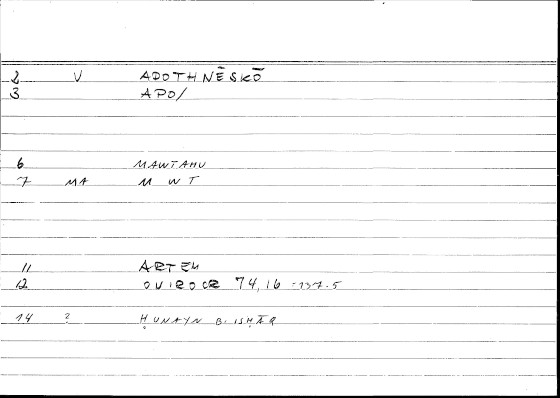 2 V APOTHNĒSKŌ
3 APO/
6 MAWTAHU
7 MA M W T
11 ARTEM
12 OVIROCR 74,16 -137.5
14 ? ḤUNAYN B. ISḤĀQ